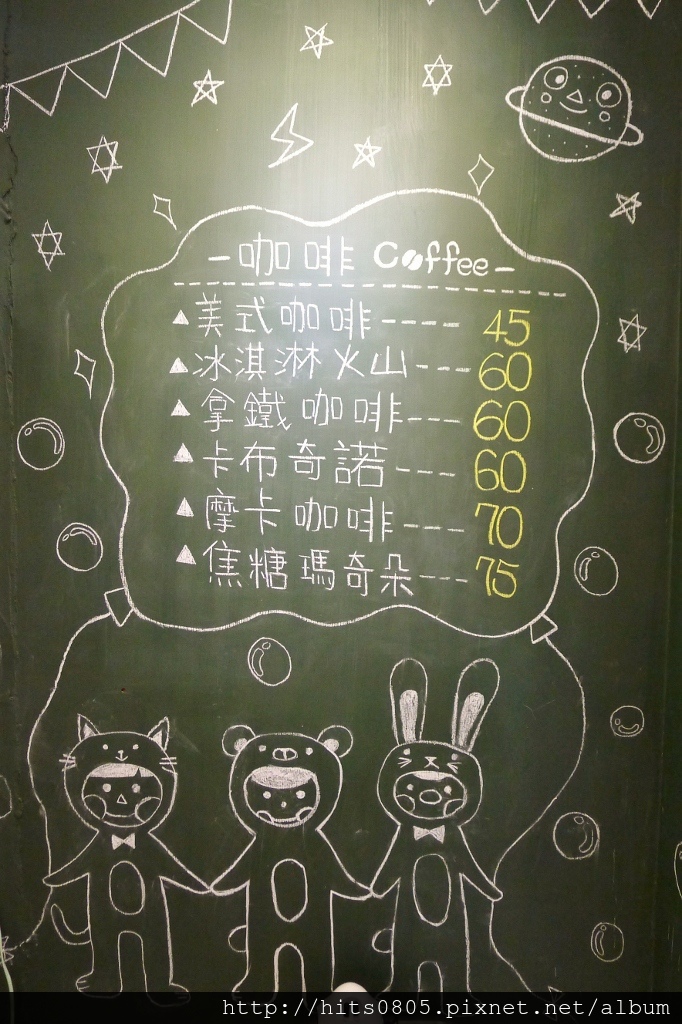 －咖啡 Coffee－
▲美式咖啡---- 45
▲冰淇淋火山--- 60
▲拿鐵咖啡--- 60
▲卡布奇諾--- 60
▲摩卡咖啡--- 70
▲焦糖瑪奇朵--- 75
http://hits0805.pixnet.net/album